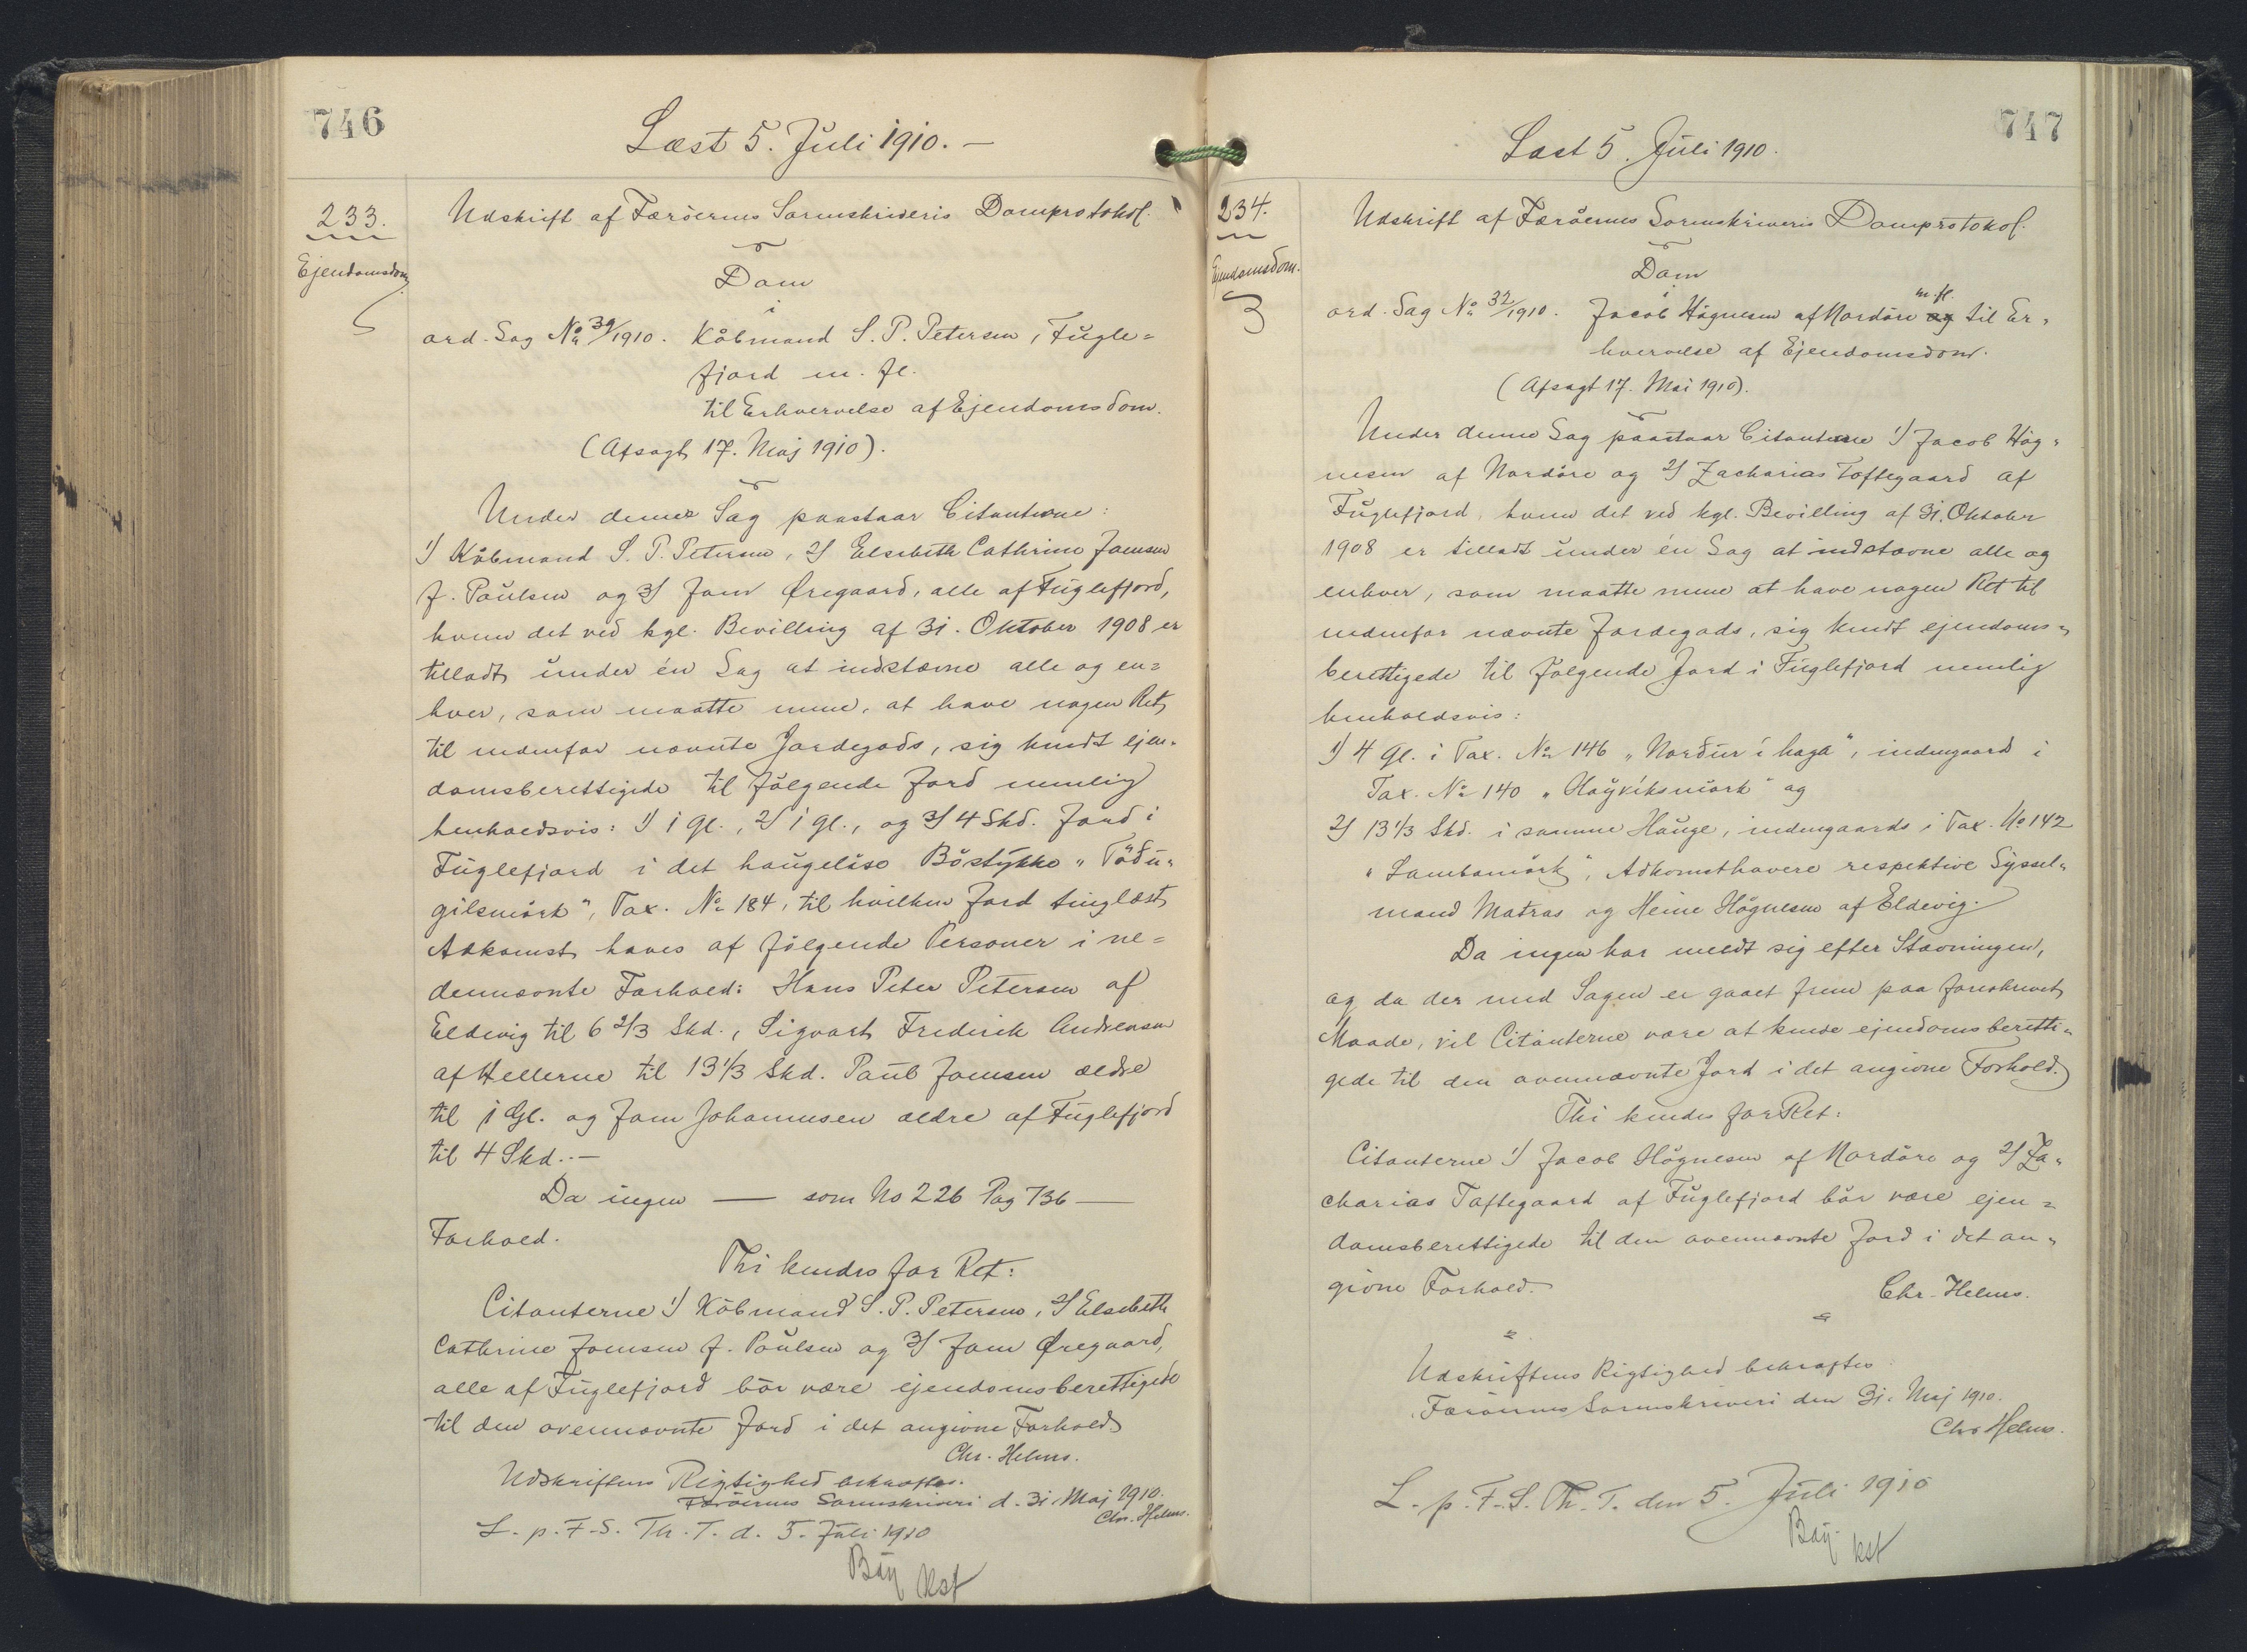 746
Læst 5. Juli 1910. –
233.
Ejendomsdom
Udskrift af Færöernes Sorenskriveris Domprotokol.
Dom
i
ord. Sag No 30/1910. Köbmand S. P. Petersen, Fugle=
fjord m. fl.
til Erhvervelse af Ejendomsdom.
(Afsagt 17. Maj 1910).
Under denne Sag paastaar Citanterne:
1) Köbmand S. P. Petersen, 2) Elsebeth Cathrine Joensen
f. Poulsen og 3) Joen Øregaard, alle af Fuglefjord,
hvem det ved kgl. Bevilling af 31. Oktober 1908 er
tilladt under én Sag at indstævne alle og en=
hver, som maatte mene, at have nogen Ret
til nedenfor nævnte Jordegods, sig kendt ejen=
domsberettigede til fölgende Jord nemlig
henholdsvis: 1) 1 Gl., 2) 1 Gl., og 3) 4 Skd. Jord i
Fuglefjord i det haugelöse Böstykke "Tödu=
gilsmörk", Tax. No 184, til hvilken Jord tinglæst
Adkomst haves af fölgende Personer i ne=
dennævnte Forhold: Hans Peter Petersen af
Eldevig til 6 2/3 Skd., Sigvart Frederik Andreasen
af Hellerne til 13 1/3 Skd. Paul Joensen ældre
til 1 Gl. og Joen Johannesen ældre af Fuglefjord
til 4 Skd. –
Da ingen — som No 226 Pag 736 —
Forhold.
Thi kendes for Ret:
Citanterne 1) Köbmand S. P. Petersen, 2) Elsebeth
Cathrine Joensen f. Poulsen og 3) Joen Øregaard,
alle af Fuglefjord bör være ejendomsberettigede
til den ovennævnte Jord i det angivne Forhold
Chr. Helms.
Udskriftens Rigtighed bekræftes.
Færöernes Sorenskriveri d. 31. Maj 1910.
Chr. Helms.
L. p. F. S. Th. T. d. 5. Juli 1910
Bay kst
747
Læst 5. Juli 1910.
234.
Ejendomsdom.
Udskrift af Færöernes Sorenskriveris Domprotokol.
Dom
i
ord. Sag No 32/1910. Jacob Högnesen af Nordöre og m. fl. til Er=
hvervelse af Ejendomsdom.
(Afsagt 17. Mai 1910).
Under denne Sag paastaar Citanterne 1) Jacob Hög=
nesen af Nordöre og 2) Zacharias Toftegaard af
Fuglefjord, hvem det ved kgl. Bevilling af 31. Oktober
1908 er tilladt under én Sag at indstævne alle og
enhver, som maatte mene at have nogen Ret til
nedenfor nævnte Jordegods, sig kendt ejendoms=
berettigede til fölgende Jord i Fuglefjord nemlig
henholdsvis:
1) 4 Gl. i Tax. No 146 "Norður í haga", indengaards i
Tax. No 140 "Høgviksmörk" og
2) 13 1/3 Skd. i samme Hauge, indengaards i Tax. No 142
"Lambamörk", Adkomsthavere respektive Syssel=
mand Matras og Heine Högnesen af Eldevig.
Da ingen har meldt sig efter Stævningen,
og da der med Sagen er gaaet frem paa foreskrevet
Maade, vil Citanterne være at kende ejendomsberetti=
gede til den ovennævnte Jord i det angivne Forhold.
Thi kendes for Ret:
Citanterne 1) Jacob Högnesen af Nordöre og 2) Za=
charias Toftegaard af Fuglefjord bör være ejen=
domsberettigede til den ovennævnte Jord i det an=
givne Forhold.
Chr. Helms.
Udskriftens Rigtighed bekræftes
Færöernes Sorenskriveri den 31. Maj 1910.
Chr Helms.
L. p. F. S. Th. T. den 5. Juli 1910
Bay kst